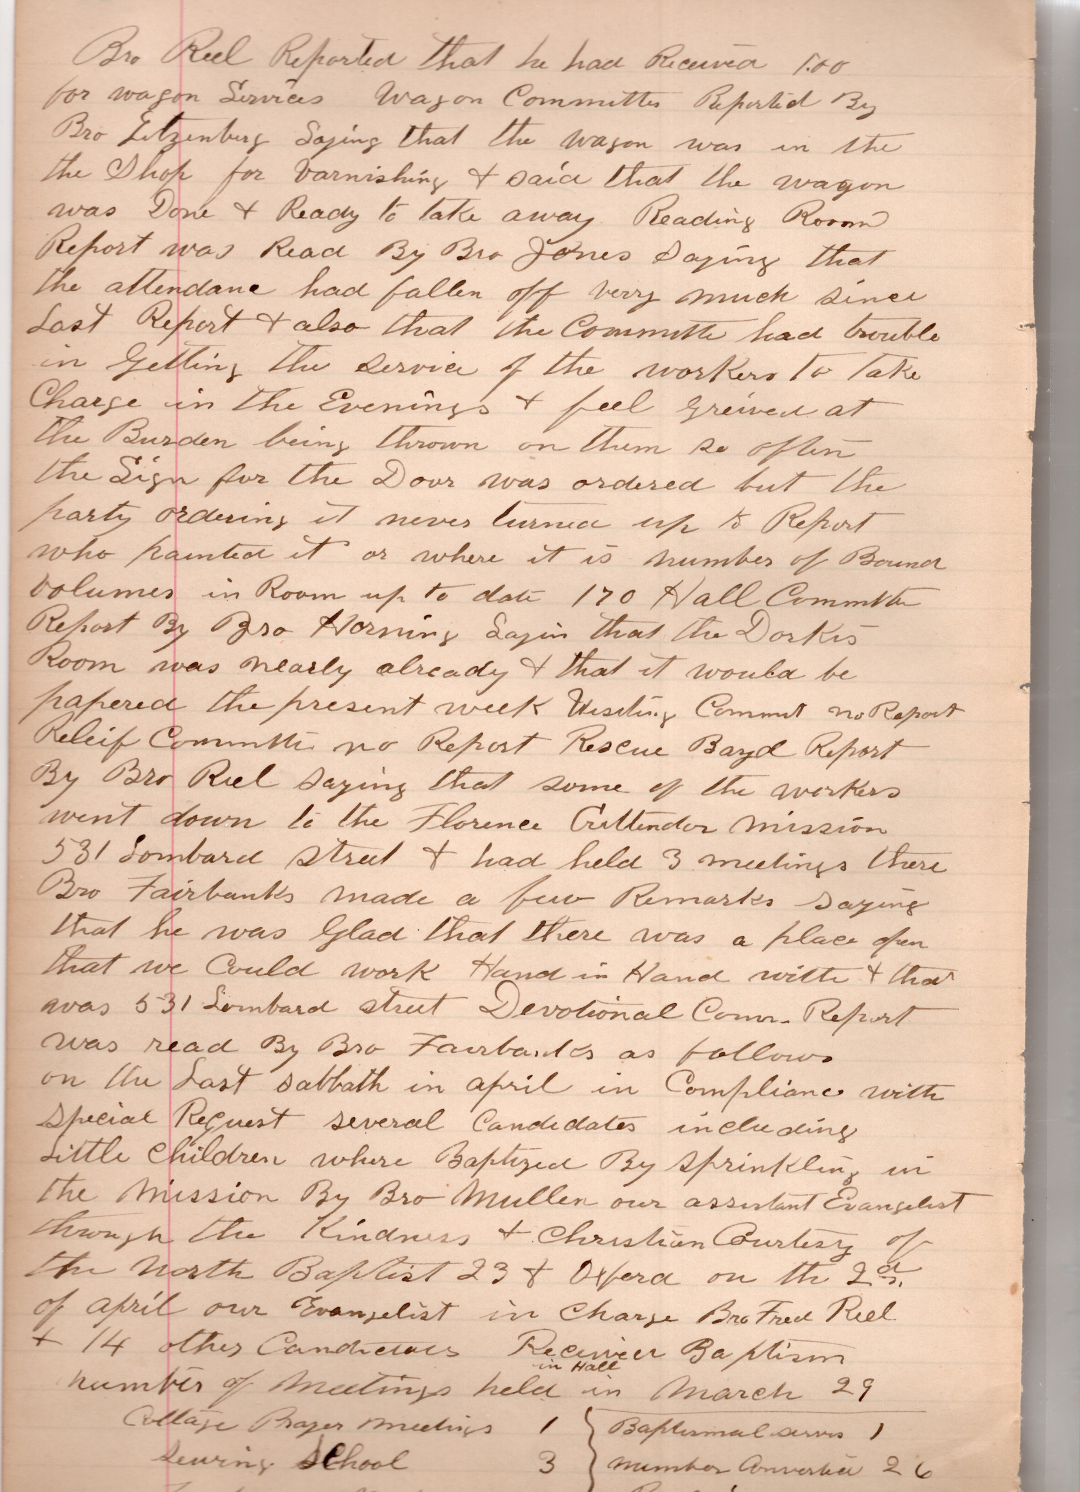 Bro Reel Reported that he had Received 1.00
for wagon Services Wagon Committee Reported By
Bro Litzenberg Saying that the wagon was in the
the Shop for Varnishing & said that the wagon
was Done & Ready to take away Reading Room
Report was Read By Bro Jones Saying that
the attendane had fallen off very much since
Last Report & also that the Committe had trouble
in Getting the service of the workers to take
Charge in the Evenings & feel Greived at
the Burden being thrown on them so often
the Sign for the Door was ordered but the
party ordering it never turned up to Report
who painted it or where it is number of Bound
Volumes in Room up to date 170 Hall Committe
Report By Bro Horning Sayin that the Dorkis
Room was nearly already & that it would be
papered the present week Visiting Commit no Report
Releif Committe no Report Rescue Band Report
By Bro Reel saying that some of the workers
went down to the Florence Crittender Mission
531 Lombard street & had held 3 meetings there
Bro Fairbanks made a few Remarks saying
that he was Glad that there was a place open
that we Could work Hand in Hand with & that
was 531 Lombard street Devotional Comm. Report
was read By Bro Fairbanks as follows
on the Last sabbath in april in Compliance with
special Request several Candidates including
Little Children where Baptized By sprinkling in
the Mission By Bro Mullen our assistant Evangelist
through the Kindness & Christian Courtesy of
the North Baptist 23 & Oxford on the 2nd.
of april our Evangelist in Charge Bro Fred Reel
& 14 other Candidates Received Baptism
in Hall
number of Meetings held in March 29
Cottage Prayer meetings 1 Baptismal servis 1
Sewing School 3 number Converted 26